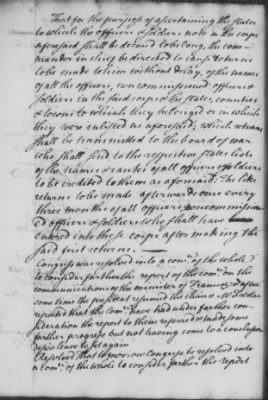 That for the purpose of ascertaining the states
to which the officers & soldiers now in the corps
aforesaid shall be deemed to belong, the com-
mander in chief be directed to cause returns
to be made to him without delay, of the names
of all the officers, non commissioned officers &
soldiers in the said corps & the states, counties
& towns to which they belonged or in which
they were inlisted as aforesaid; which returns
shall be transmitted to the board of war
who shall send to the respective states lists
of the names & ranks of all officers & soldiers
to be credited to them as aforesaid: The like
returns to be made afterwards once every
three months of all officers, noncommission-
ed officers & soldiers who shall have
entered into these corps after making the
said first returns.
Congress was resolved into a comee. of the whole
to consider farther the report of the comee. on the
communications of the minister of France; & after
some time the president resumed the chair & Mr
reported that the comee. have had under farther con-
sideration the report to them referred & made some
farther progress but not having come to a conclusion
desire leave to sit again
Resolved That tomorrow congress be resolved into
a comee. of the whole to consider farther the report